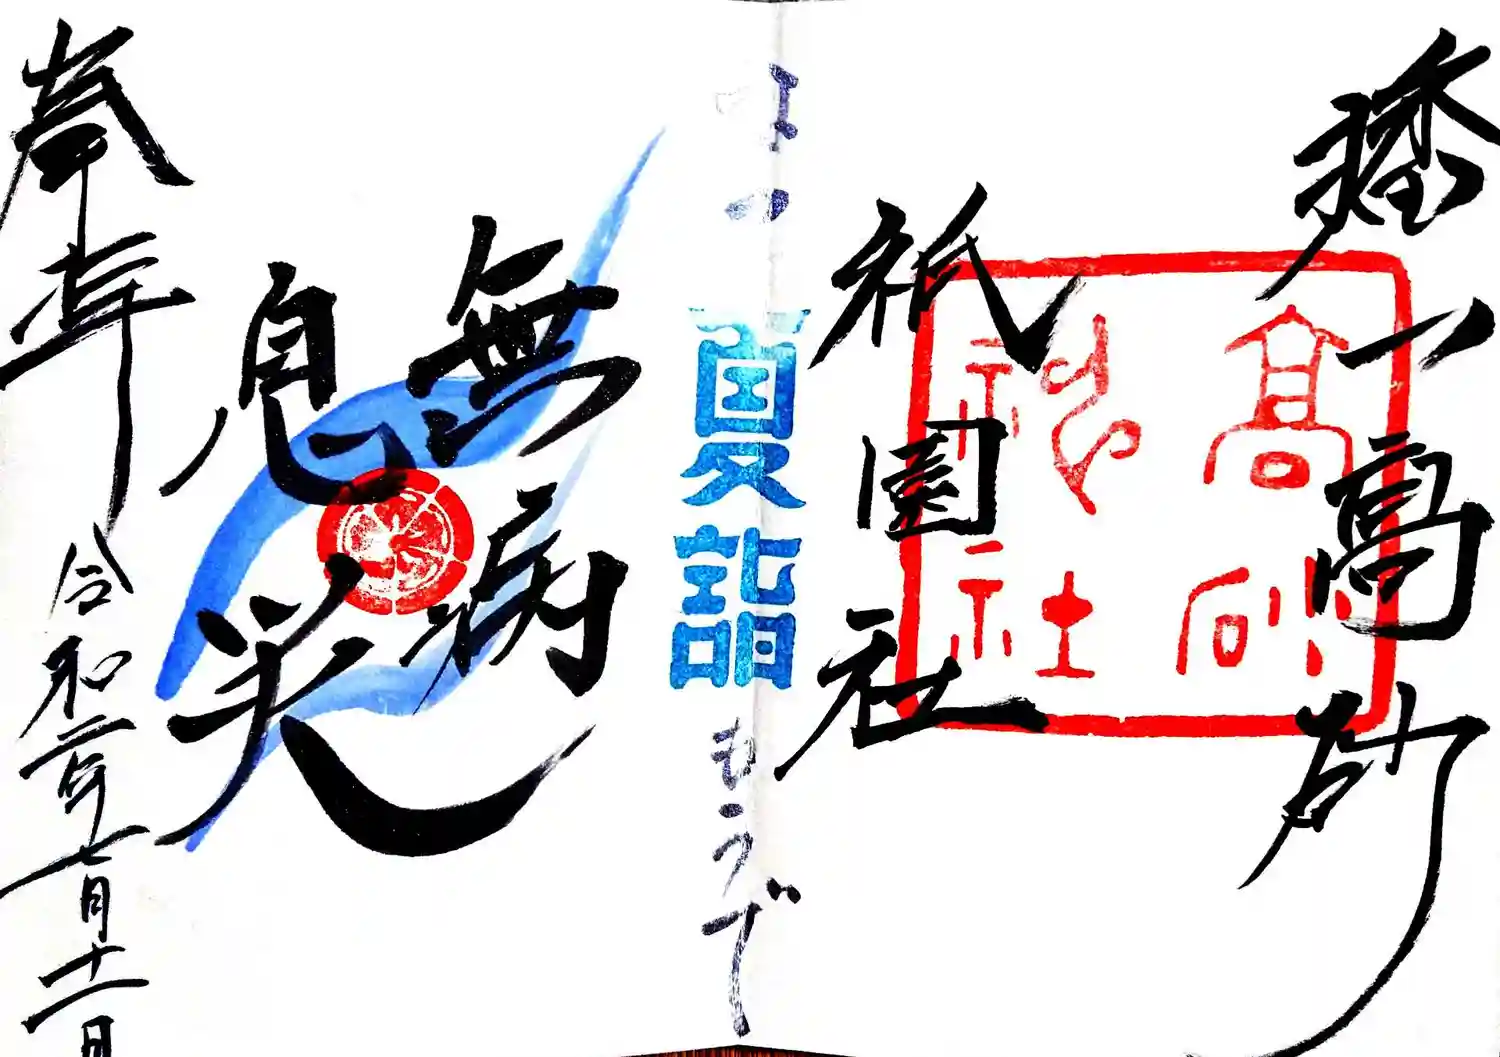 播 高砂
祇園社
高砂
神社
なつ
夏詣
もうで
無病
息災
奉拝
令和二年七月十一日